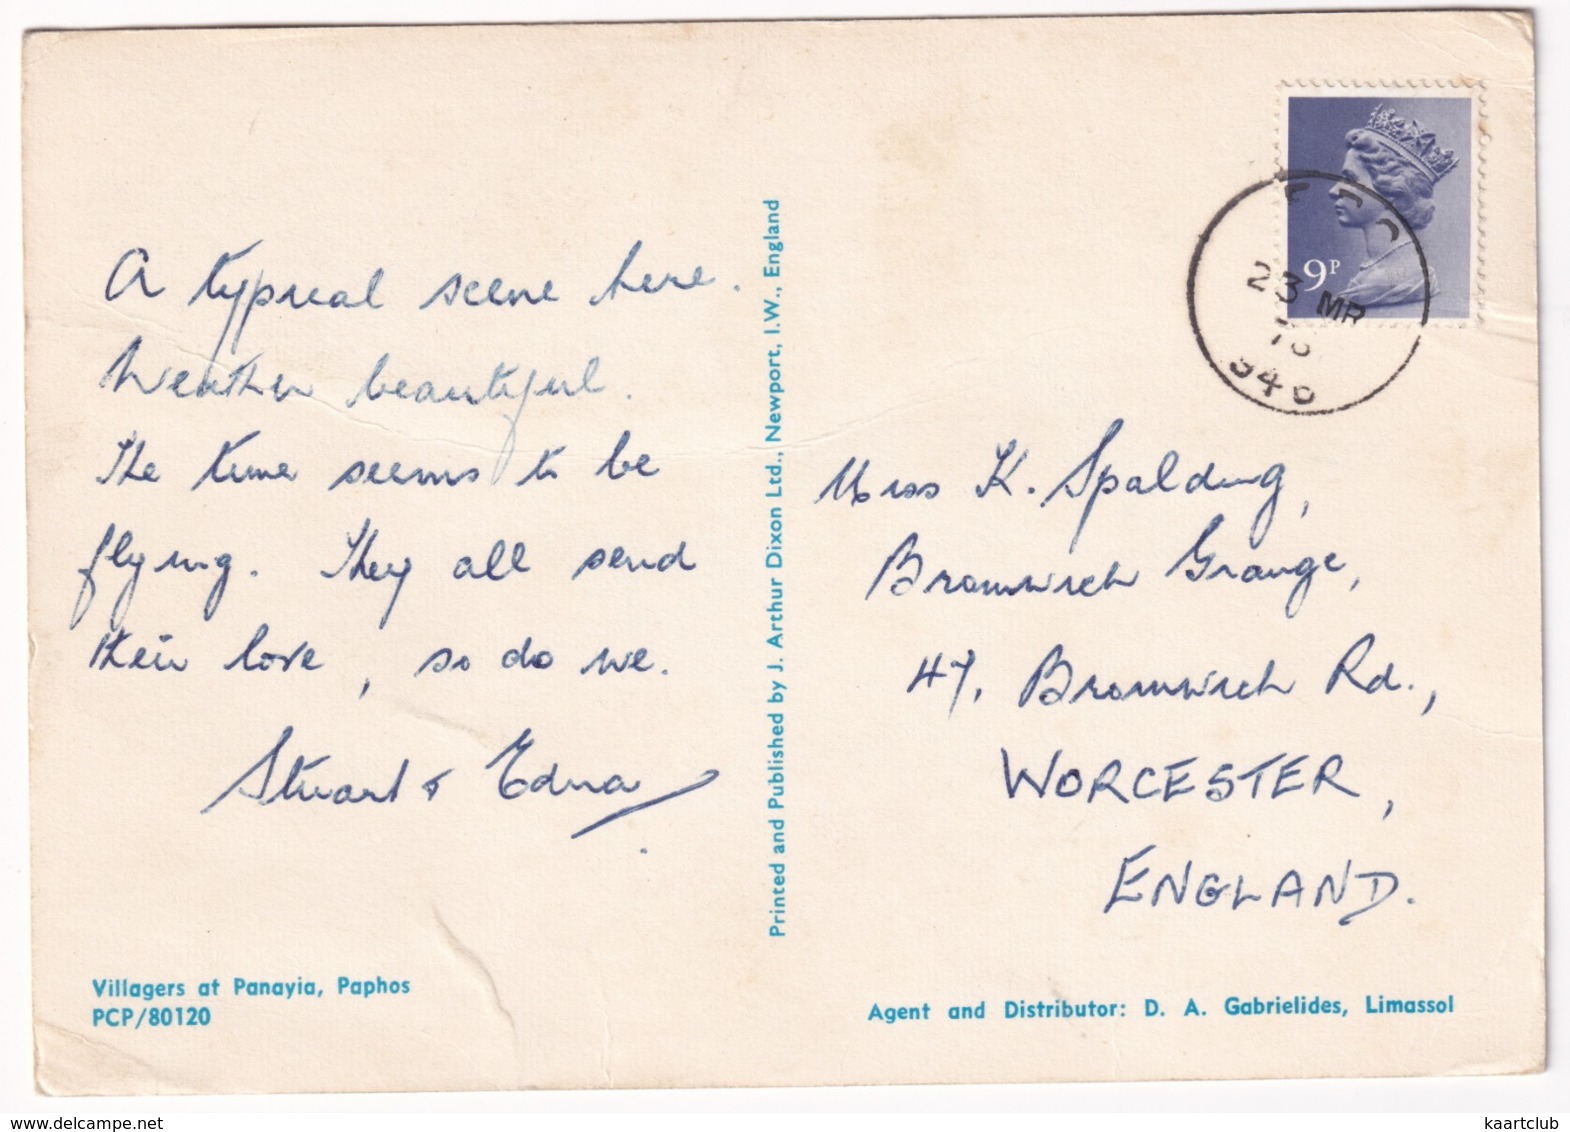 A typical scene here.
Weather beautiful.
The time seems to be
flying. They all send
their love, so do we.
Stuart & Edna
Villagers at Panayia, Paphos
PCP/80120
Printed and Published by J. Arthur Dixon Ltd., Newport, I.W., England
9P
23 MR
Miss K. Spalding,
Bromwich Grange,
47, Bromwich Rd.,
WORCESTER,
ENGLAND.
Agent and Distributor: D. A. Gabrielides, Limassol
kaartclub